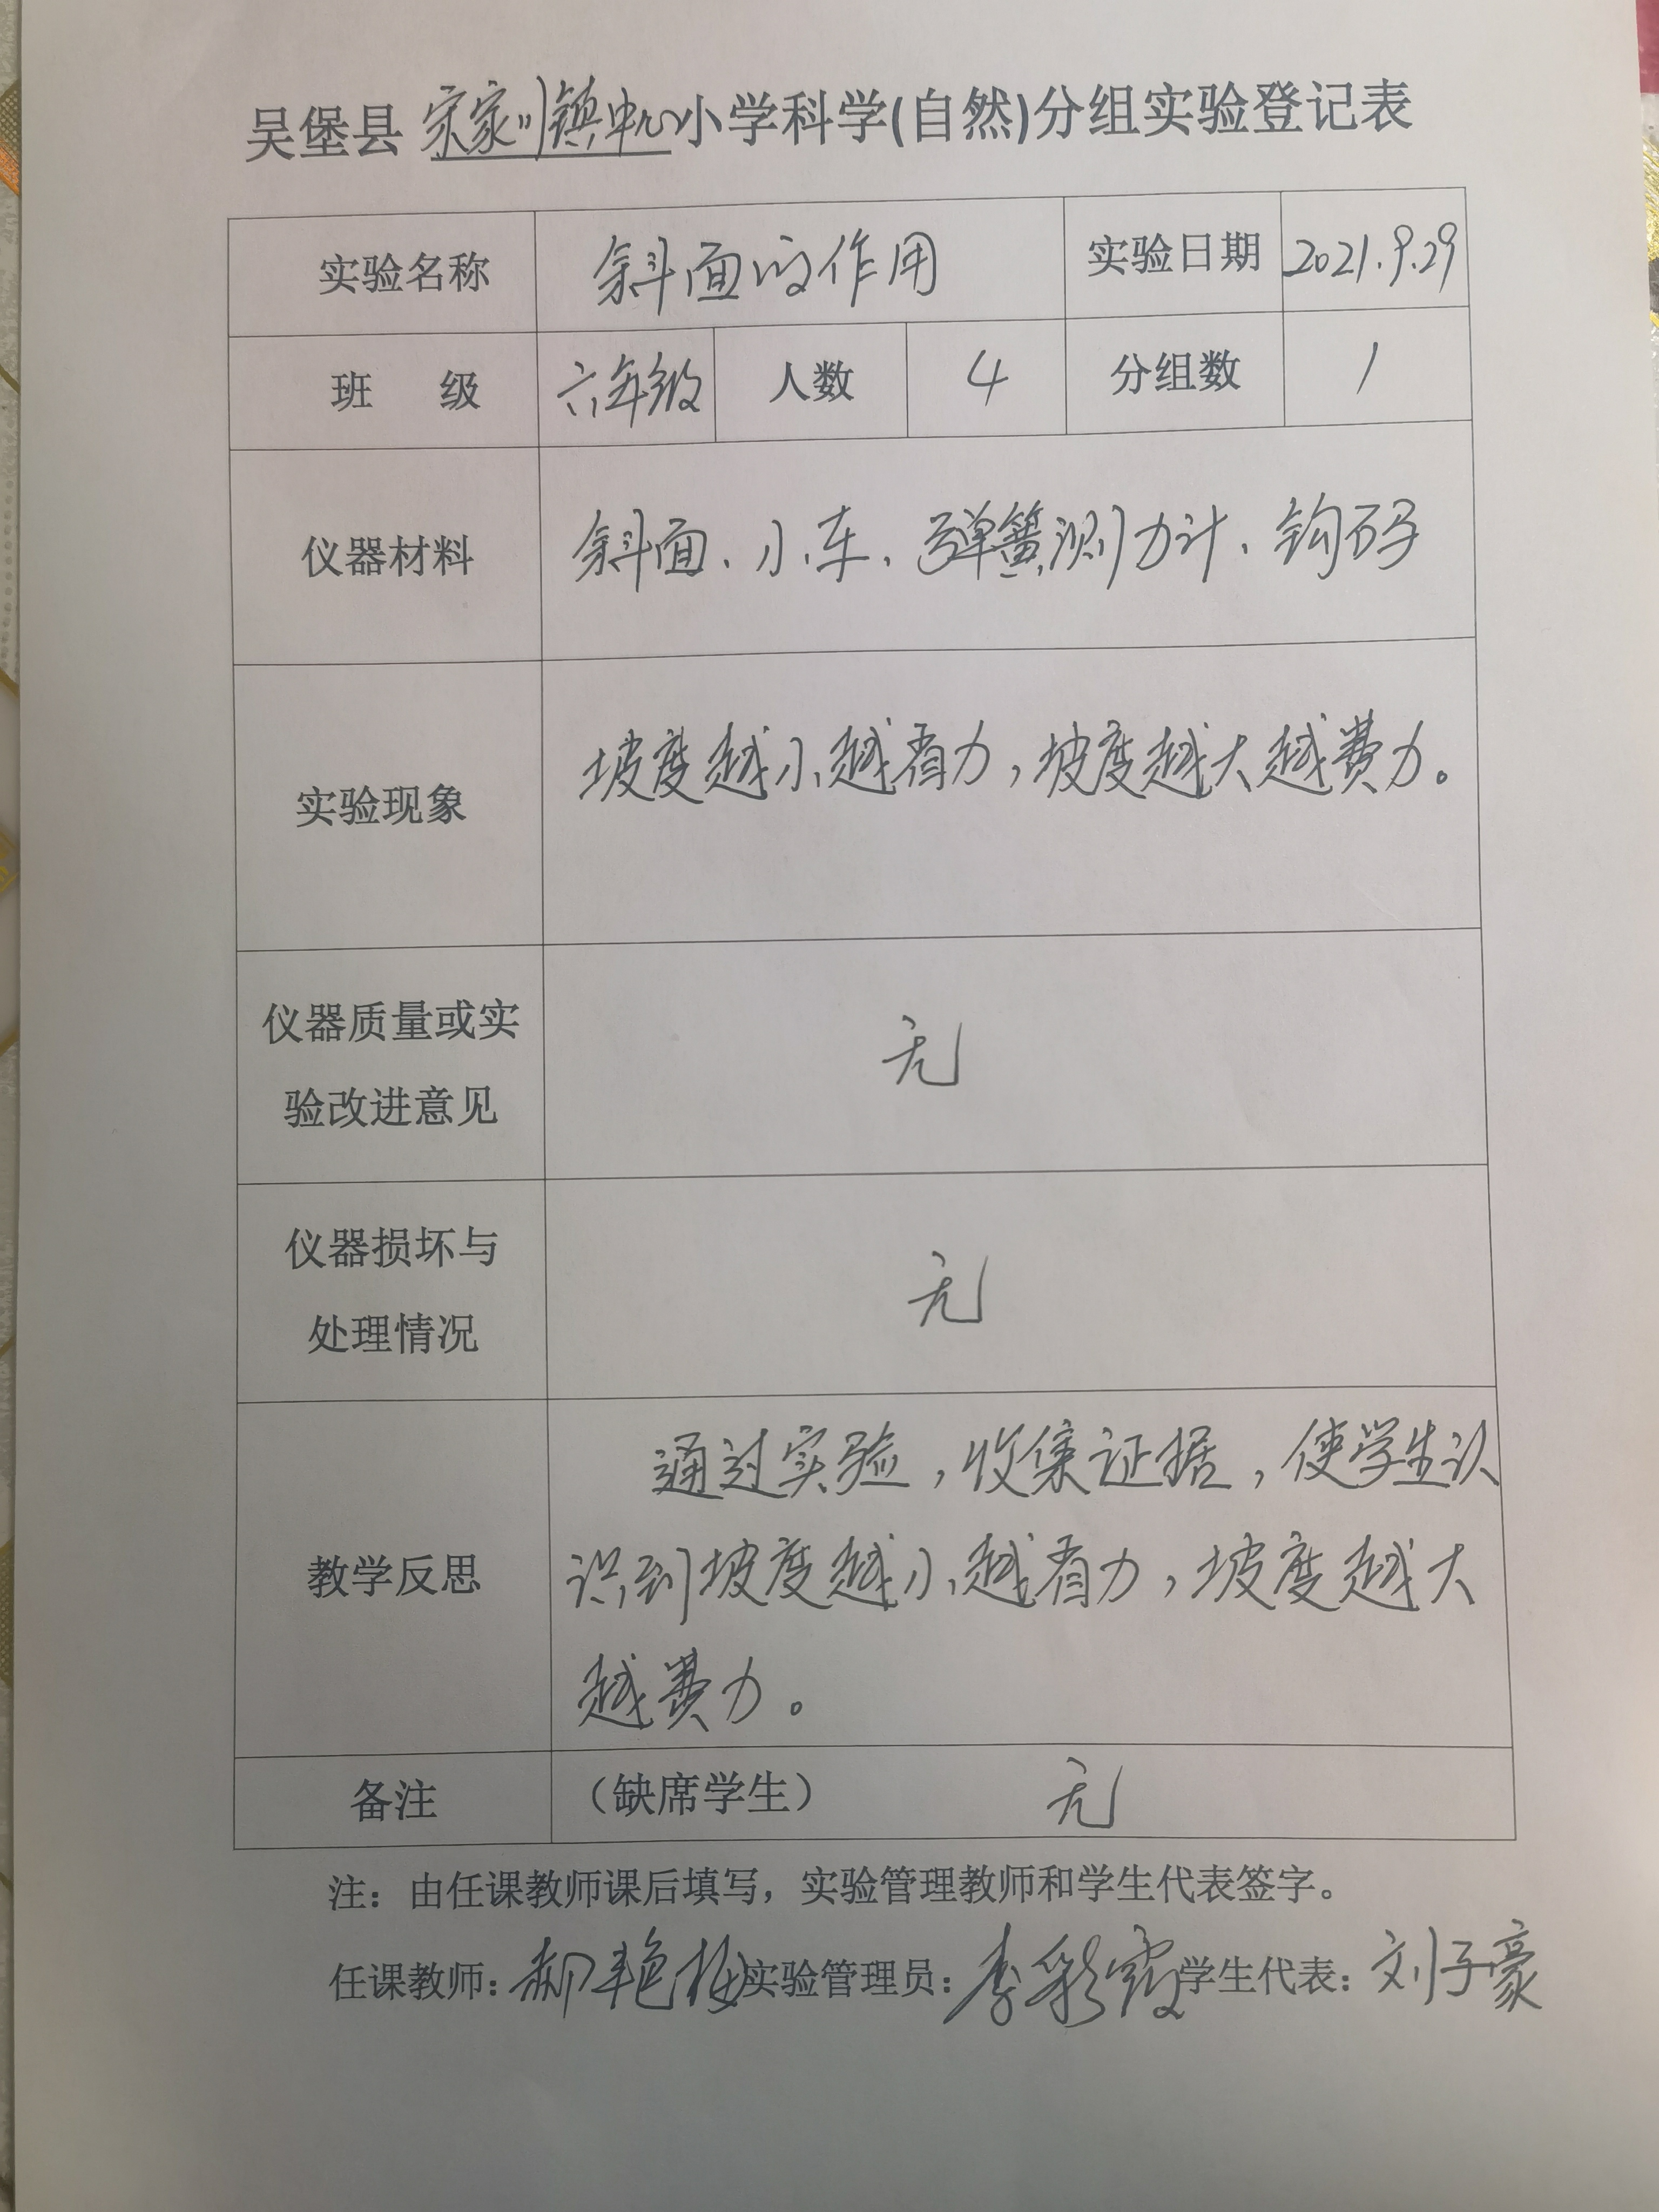 吴堡县 宋家川镇中心小学科学(自然)分组实验登记表
实验名称 斜面的作用 实验日期 2021.9.29
班 级 六年级 人数 4 分组数 1
仪器材料 斜面、小车、弹簧测力计、钩码
实验现象 坡度越小越省力，坡度越大越费力。
仪器质量或实
验改进意见
无
仪器损坏与
处理情况
无
教学反思
通过实验，收集证据，使学生认
识到坡度越小越省力，坡度越大
越费力。
备注 （缺席学生） 无
注：由任课教师课后填写，实验管理教师和学生代表签字。
任课教师：郝艳梅 实验管理员：李彩霞 学生代表：刘子豪